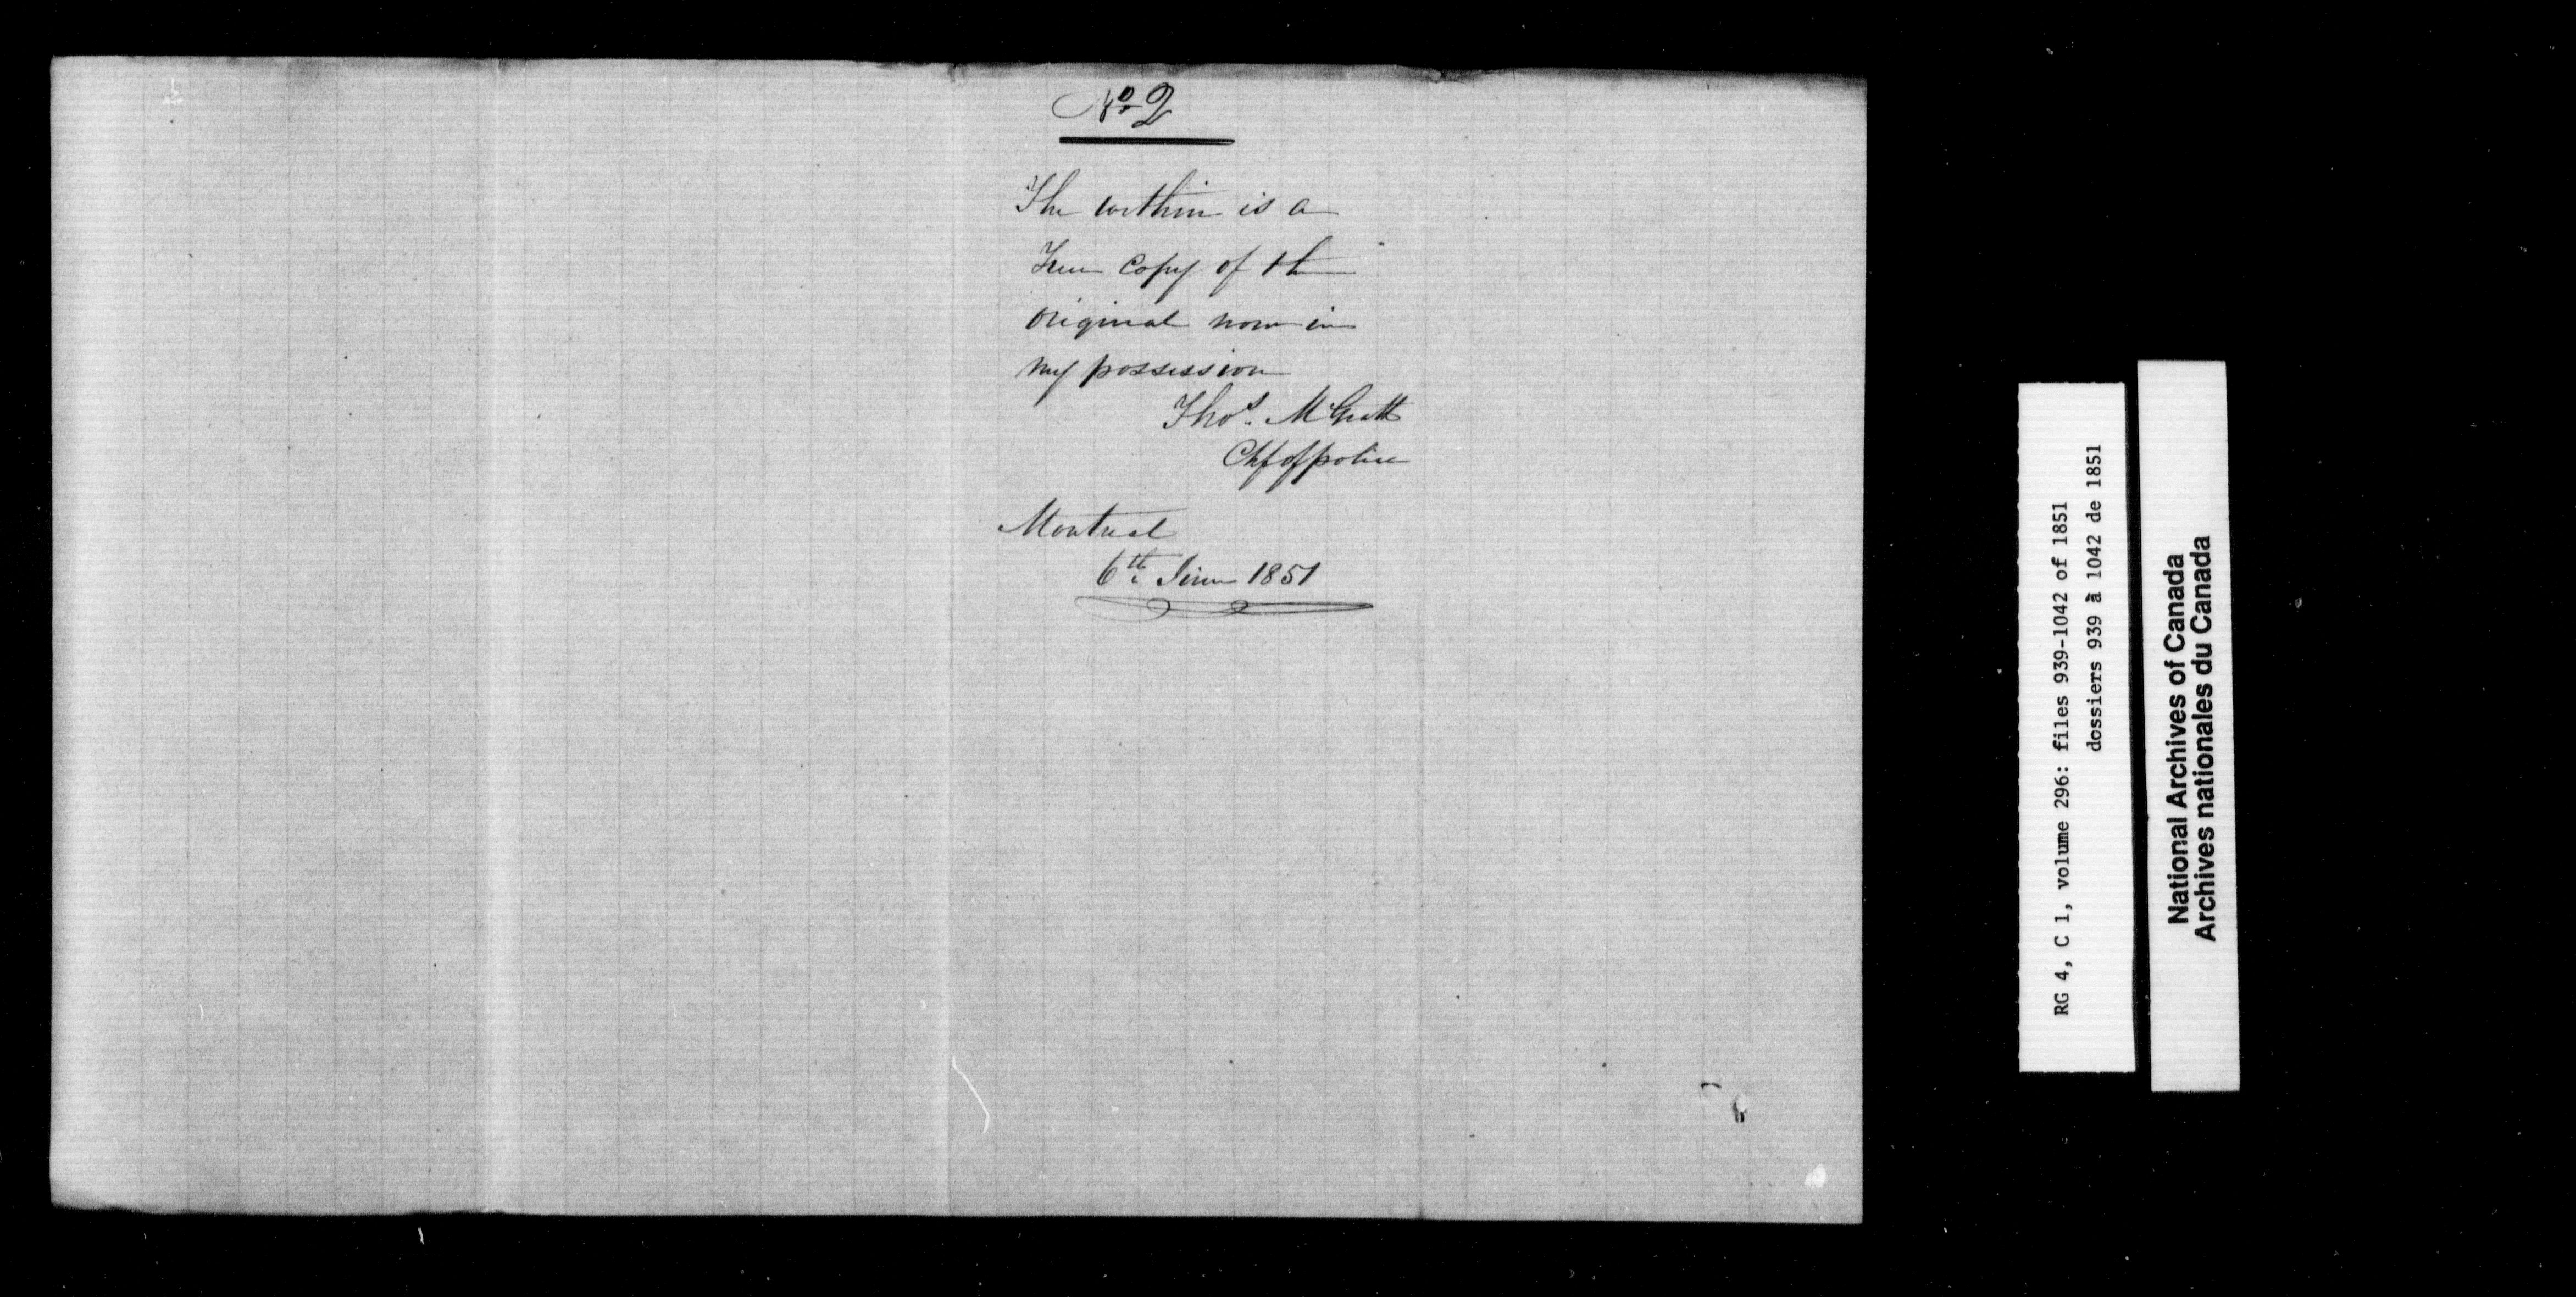 No 2
The within is a
True Copy of the
original now in
my possession
Thos. McGrath
Chf of police
Montreal
6th June 1851
RG 4, C 1, volume 296: files 939-1042 of 1851
dossiers 939 à 1042 de 1851
National Archives of Canada
Archives nationales du Canada